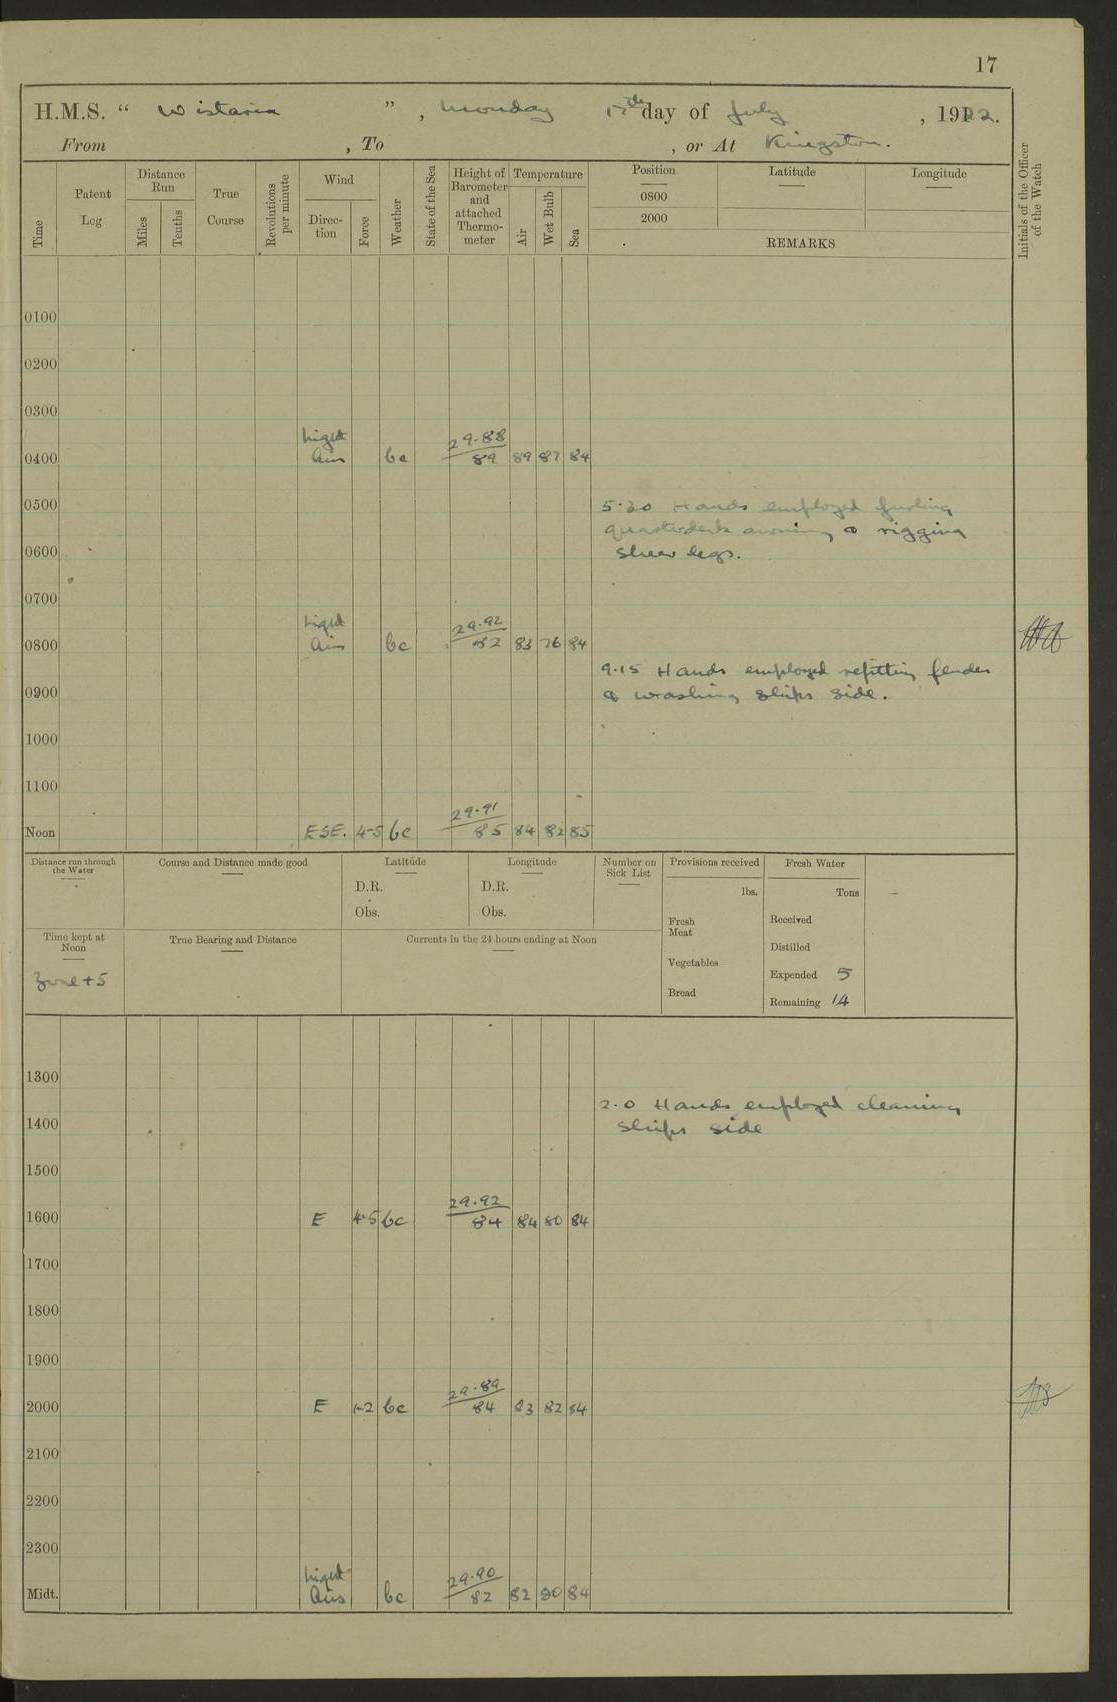 17
H.M.S. “ Wistaria ”, Monday 17th day of July, 1922.
From , To , or At Kingston.
Time
Patent Log
Distance Run
Miles
Tenths
True Course
Revolutions per minute
Wind
Direction
Force
Weather
State of the Sea
Height of Barometer and attached Thermometer
Temperature
Air
Wet Bulb
Sea
Position
0800
2000
Latitude
Longitude
REMARKS
Initials of the Officer of the Watch
0100
0200
0300
Light 29.88
0400 Airs bc 89 89 87 84
0500 5.30 Hands employed furling
quarterdeck awning & rigging
0600 sheer legs.
0700
Light 29.92
0800 Airs bc 82 83 76 84
9.15 Hands employed refitting fender
0900 & washing ships side.
1000
1100
29.91
Noon ESE. 4-5 bc 85 84 82 85
Distance run through the Water
Course and Distance made good
Latitude
D.R.
Obs.
Longitude
D.R.
Obs.
Number on Sick List
Provisions received
lbs.
Fresh Meat
Vegetables
Bread
Fresh Water
Tons
Received
Distilled
Expended 5
Remaining 14
Time kept at Noon
Zone +5
True Bearing and Distance
Currents in the 24 hours ending at Noon
1300
2.0 Hands employed cleaning
1400 ships side
1500
29.92
1600 E 4-5 bc 84 84 80 84
1700
1800
1900
29.89
2000 E 1-2 bc 84 83 82 84
2100
2200
2300
Light 29.90
Midt. Airs bc 82 82 80 84